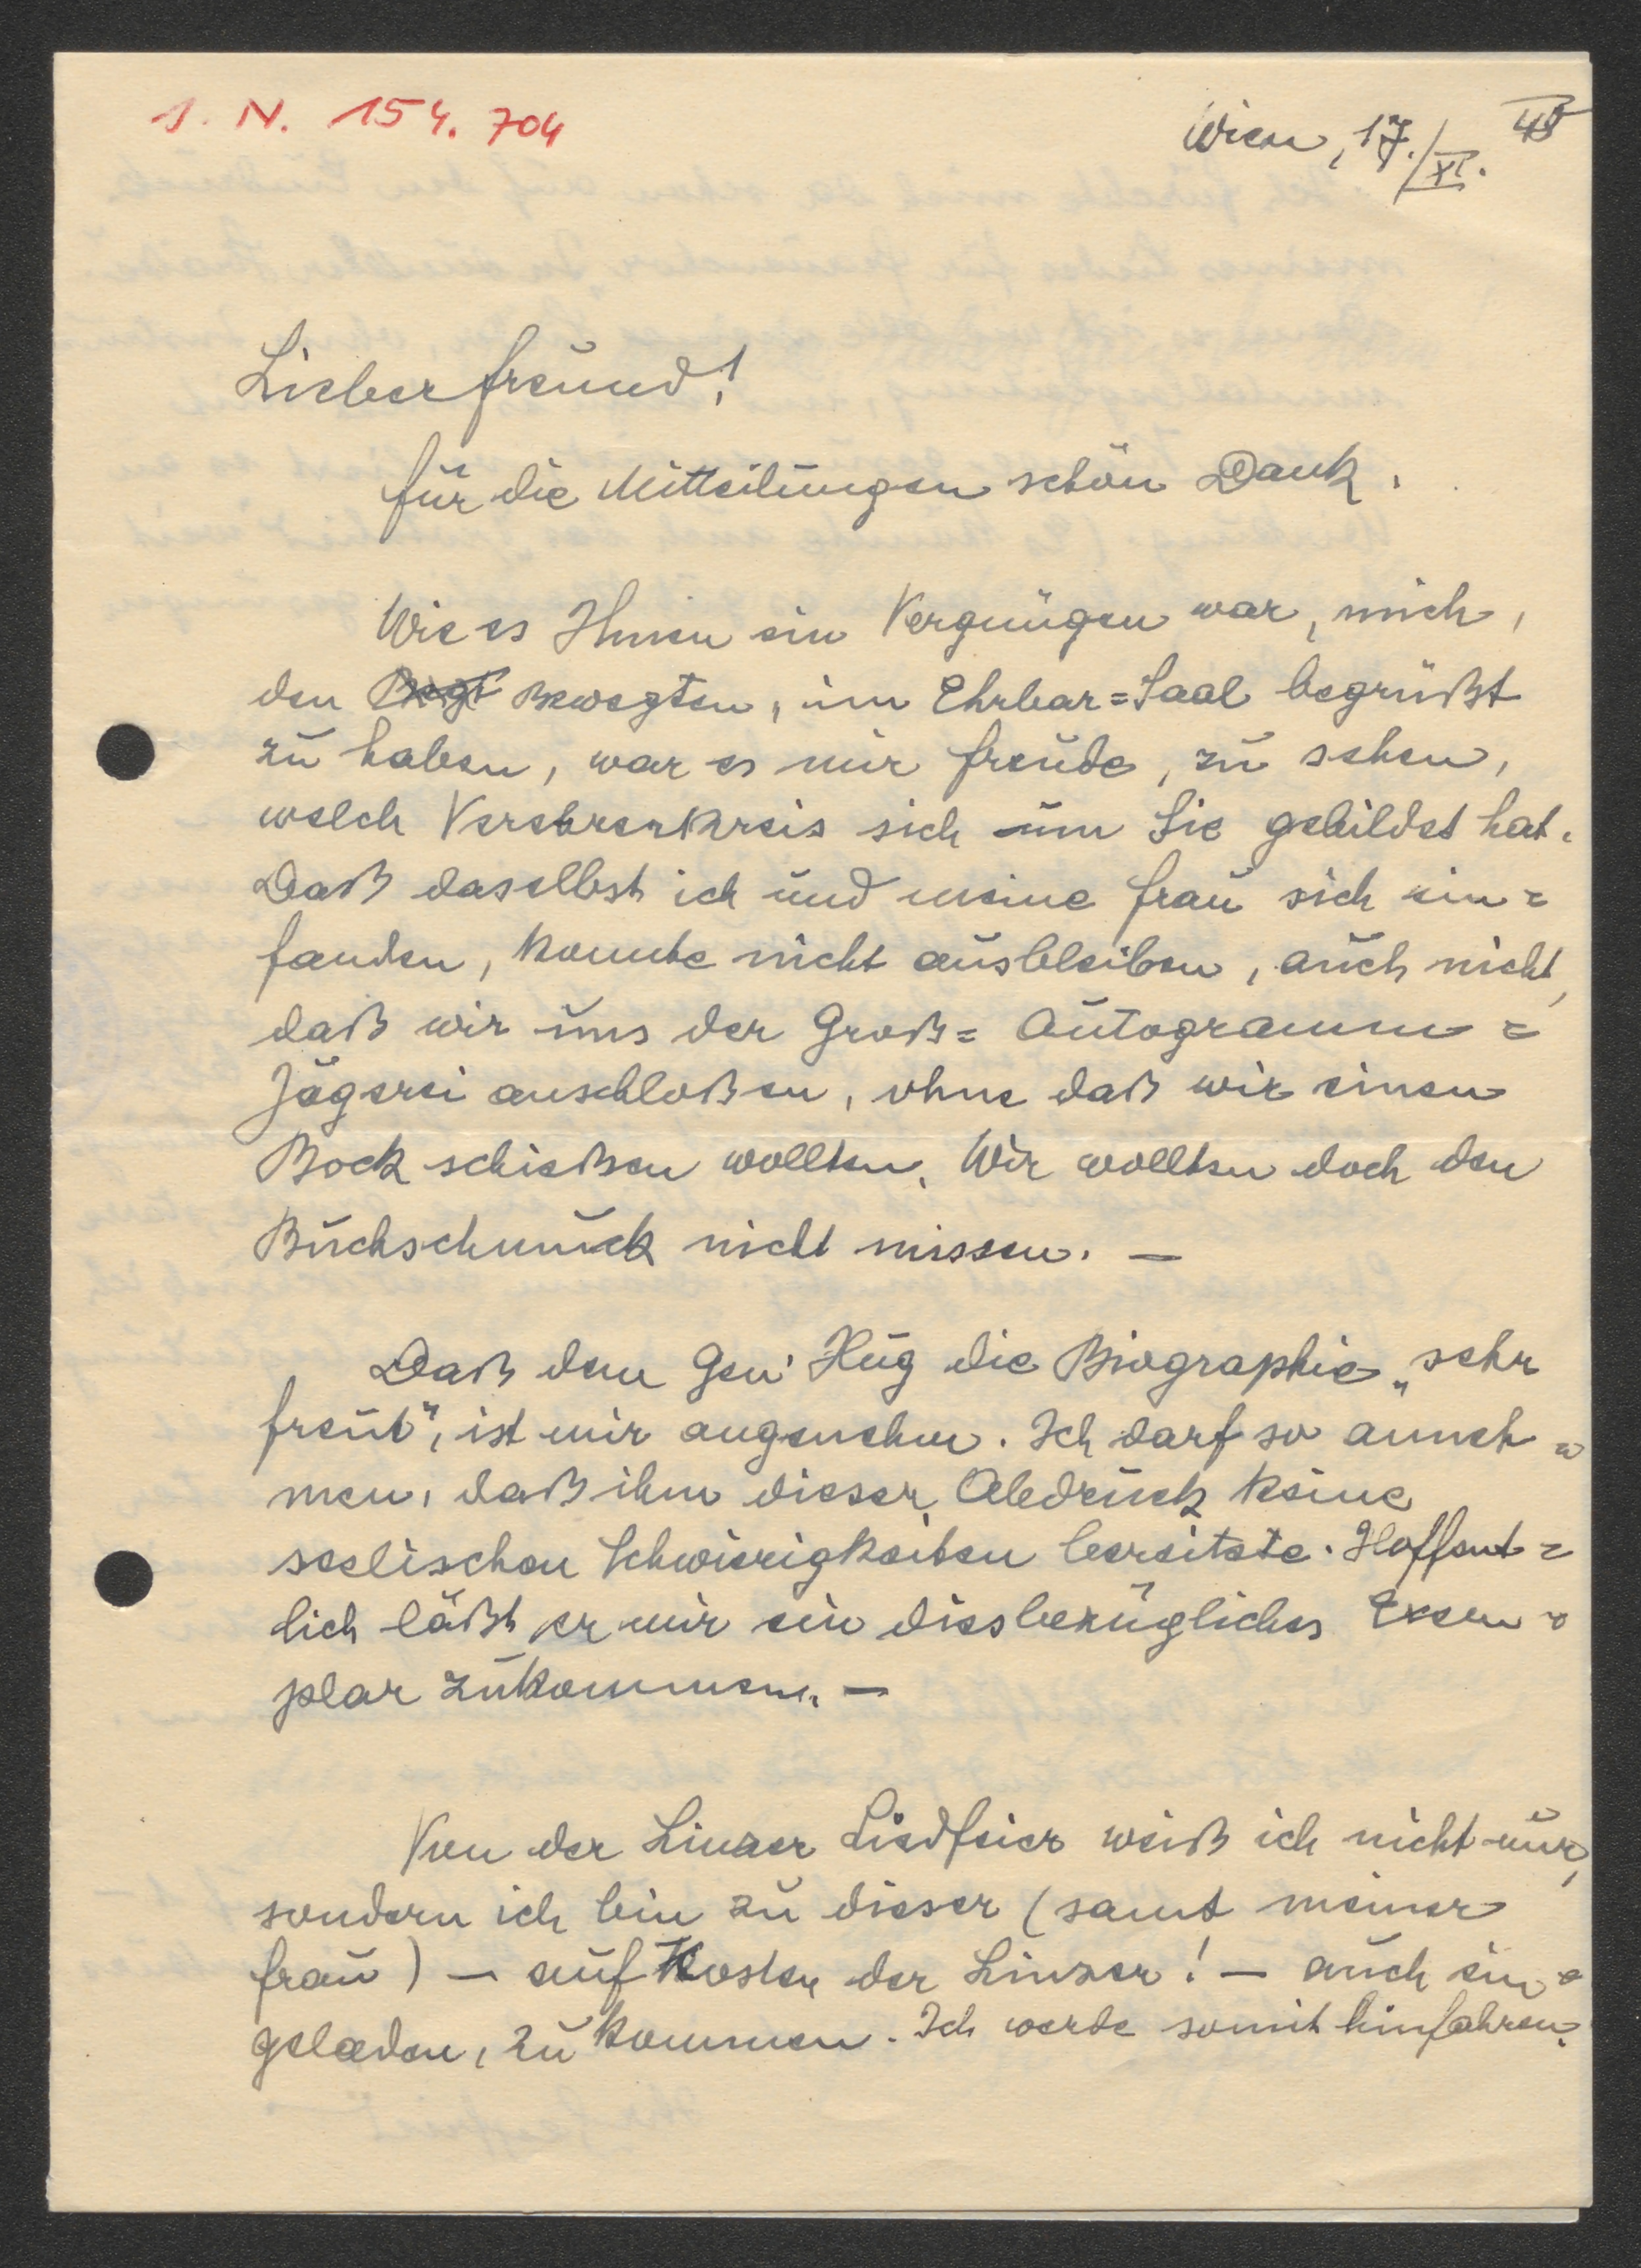 J. N. 154.704
Wien, 17./XI. 48
Lieber Freund!
Für die Mitteilungen schön Dank.
Wie es Ihnen ein Vergnügen war, mich,
den Bewegten, im Ehrbar=Saal begrüßt
zu haben, war es mir Freude, zu sehen,
welch Verehrerkreis sich um Sie gebildet hat.
Daß daselbst ich und meine Frau sich ein=
fanden, konnte nicht ausbleiben, auch nicht,
daß wir uns der Groß= Autogramm=
Jägerei anschloßen, ohne daß wir einen
Bock schießen wollten. Wir wollten doch den
Buchschmuck nicht missen. —
Daß dem Gen. Hug die Biographie „sehr
freut", ist mir angenehm. Ich darf so anneh=
men, daß ihm dieser Abdruck keine
seelischen Schwierigkeiten bereitete. Hoffent=
lich läßt er mir ein diesbezügliches Exem=
plar zukommen. —
Von der Linzer Liedfeier weiß ich nicht nur,
sondern ich bin zu dieser (samt meiner
Frau) — auf Kosten der Linzer! — auch ein=
geladen, zu kommen. Ich werde somit hinfahren.